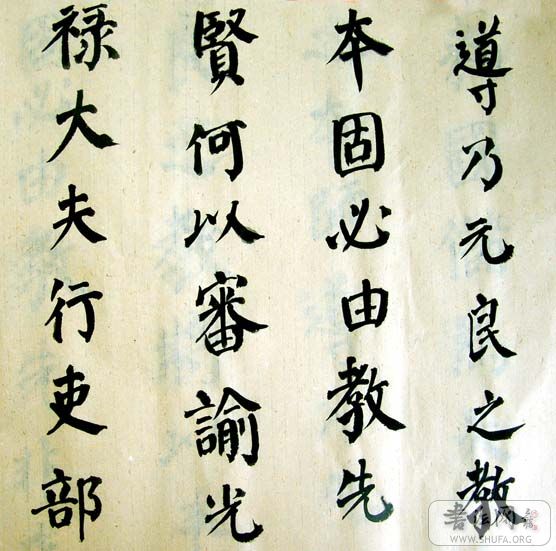 導乃元良之教
本固必由教先
賢何以審諭光
禄大夫行吏部
WWW.SHUFA.ORG